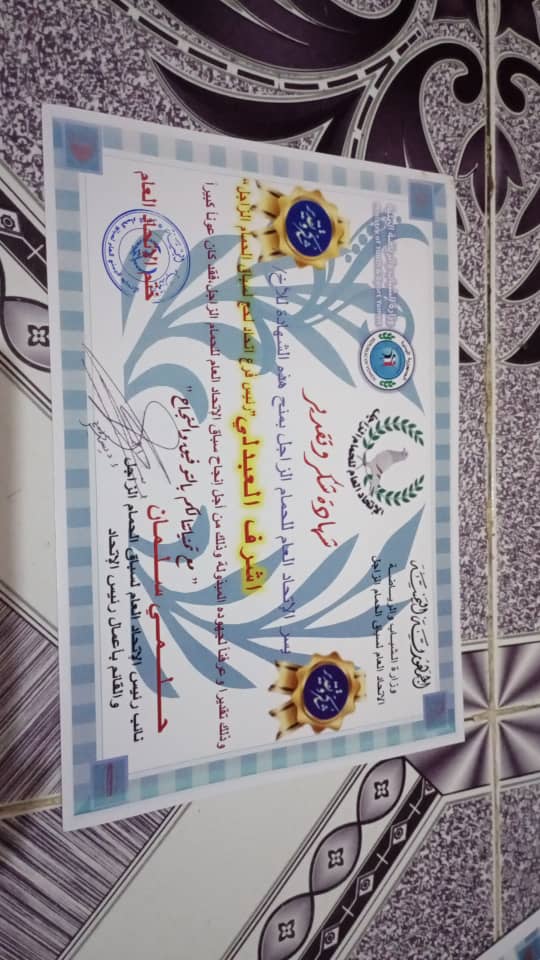 الجمهورية اليمنية
وزارة الشباب والرياضة
الاتحاد العام لسباق الحمام الزاجل
الإتحاد العام للحمام الزاجل
شهادة شكر وتقدير
شكر وتقدير
شكر وتقدير
يسر الإتحاد العام للحمام الزاجل بمنح هذه الشهادة للأخ/
اشرف العبدلي "رئيس فرع اتحاد لحج لسباق الحمام الزاجل"
وذلك تقديراً وعرفناً لجهوده المبذولة وذلك من أجل إنجاح سباق الاتحاد العام للحمام الزاجل فقد كان عوناً كبيراً
" مع تمنياتنا لكم بالتوفيق والنجاح "
حلمي سلمان
نائب رئيس الإتحاد العام لسباق الحمام الزاجل
والقائم بأعمال رئيس الإتحاد
ختم الإتحاد العام